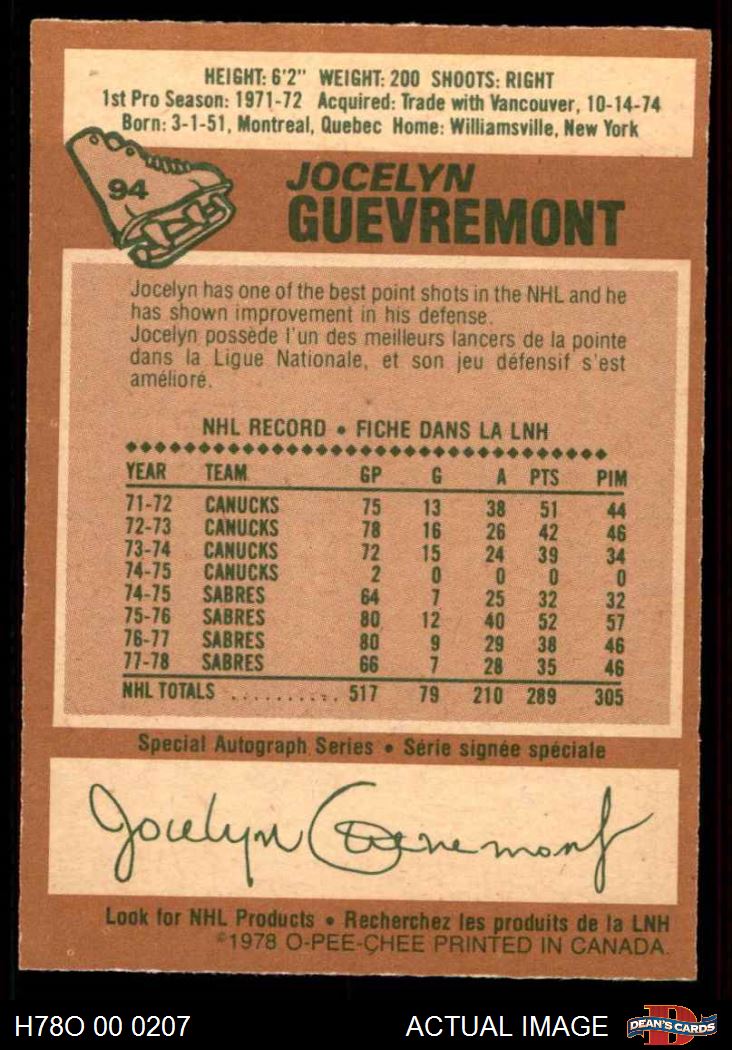 HEIGHT: 6'2" WEIGHT: 200 SHOOTS: RIGHT
1st Pro Season: 1971-72 Acquired: Trade with Vancouver, 10-14-74
Born: 3-1-51, Montreal, Quebec Home: Williamsville, New York
94
JOCELYN
GUEVREMONT
Jocelyn has one of the best point shots in the NHL and he
has shown improvement in his defense.
Jocelyn possède l'un des meilleurs lancers de la pointe
dans la Ligue Nationale, et son jeu défensif s'est
amélioré.
NHL RECORD • FICHE DANS LA LNH
YEAR TEAM GP G A PTS PIM
71-72 CANUCKS 75 13 38 51 44
72-73 CANUCKS 78 16 26 42 46
73-74 CANUCKS 72 15 24 39 34
74-75 CANUCKS 2 0 0 0 0
74-75 SABRES 64 7 25 32 32
75-76 SABRES 80 12 40 52 57
76-77 SABRES 80 9 29 38 46
77-78 SABRES 66 7 28 35 46
NHL TOTALS .......... 517 79 210 289 305
Special Autograph Series • Série signée spéciale
Jocelyn Guevremont
Look for NHL Products • Recherchez les produits de la LNH
©1978 O-PEE-CHEE PRINTED IN CANADA.
H78O 00 0207 ACTUAL IMAGE D DEAN'S CARDS